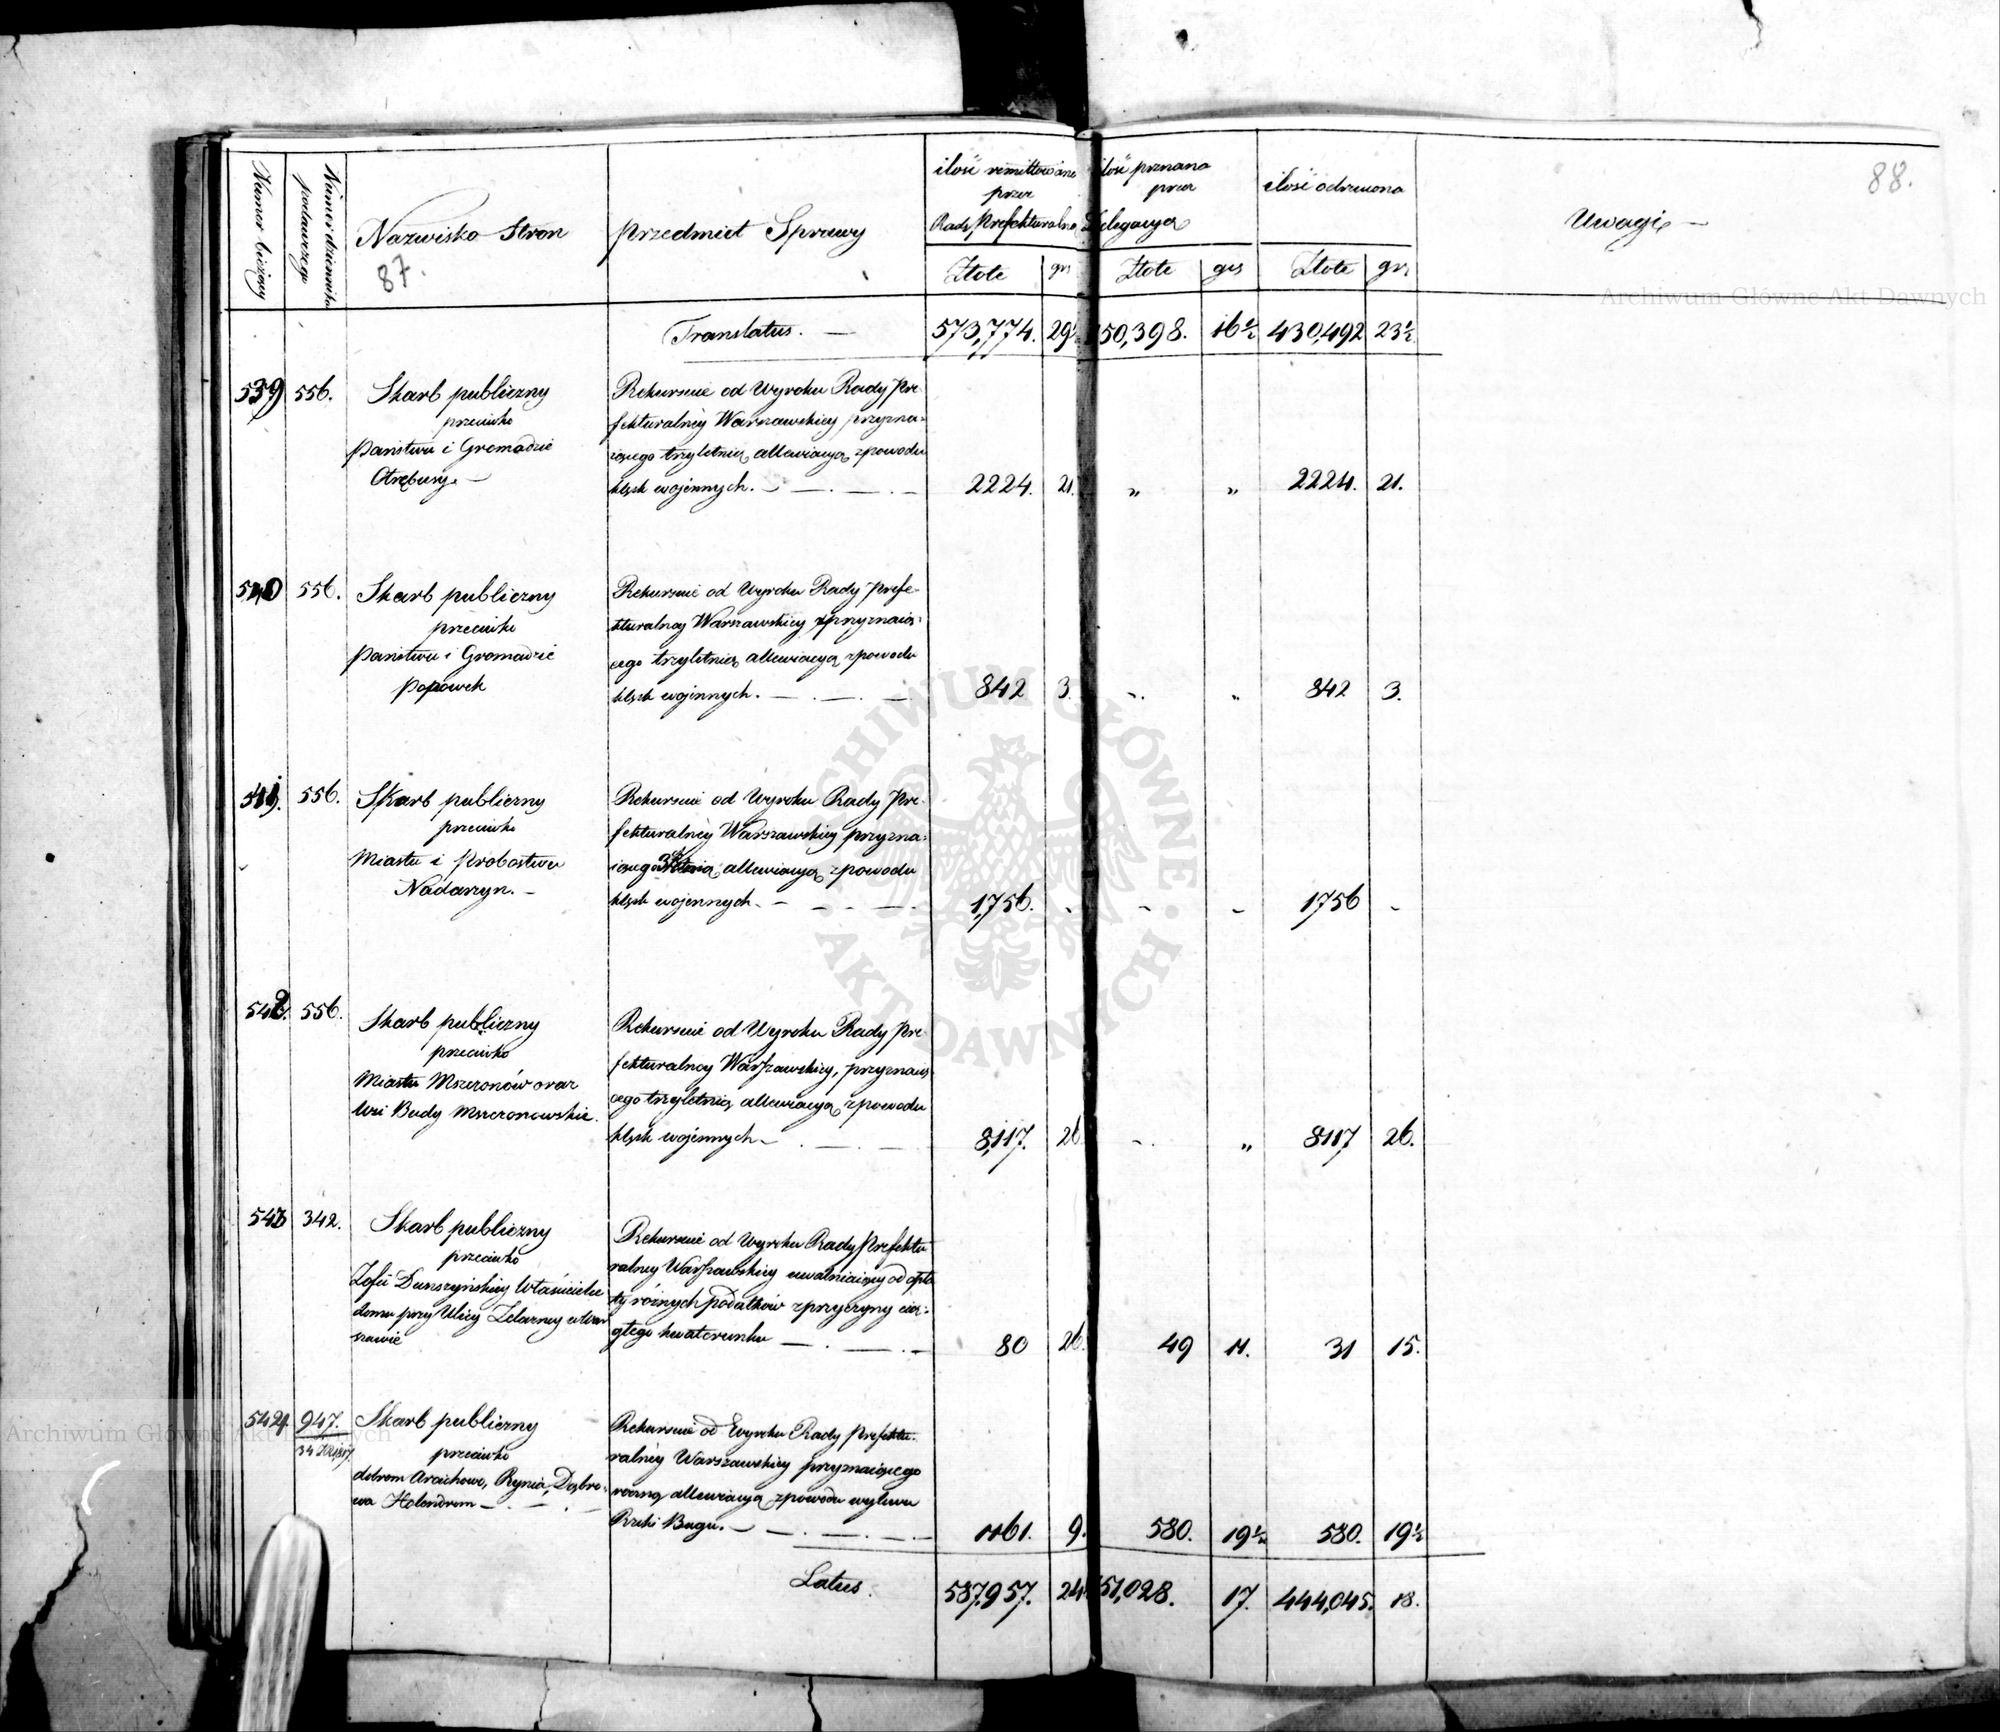 88.
Numer bieżący
Numer dziennika podawczego
Nazwisko Stron
87.
Przedmiot Sprawy
ilość remittowana przez Radę Prefekturalną
ilość przznana przez Delegacyą
ilość odrzucona
Uwagi
Złote grs Złote grs Złote grs
Translatus. — 573,774. 29½ 150,398. 16½ 430,492 23½
539 556. Skarb publiczny
przeciwko
Państwu i Gromadzie
Otrębusy. —
Rekursuie od Wyroku Rady Pre-
fekturalnéy Warszawskiéy przyzna-
iącego trzyletnią allewiacyą zpowodu
klęsk wojennych. — 2224. 21. „ „ 2224. 21.
540 556. Skarb publiczny
przeciwko
Państwu i Gromadzie
Popówek
Rekursuie od Wyroku Rady Prefe-
kturalney Warszawskiey przyznaią-
cego trzyletnią allewiacyą zpowodu
klęsk wojennych. — 842 3. „ „ 842 3.
541. 556. Skarb publiczny
przeciwko
Miastu i Probostwu
Nadarzyn. —
Rekursuie od Wyroku Rady Pre-
fekturalnéy Warszawskiey przyzna-
iącego allewiacyą zpowodu
klęsk wojennych — 1,756. - - - 1756 -
542. 556. Skarb publiczny
przeciwko
Miastu Mszczonów oraz
Wsi Budy Mszczonowskie.
Rekursuie od Wyroku Rady Pre-
fekturalney Warszawskiey, przyznaią
cego trzyletnią allewiacyą zpowodu
klęsk wojennych — 8,117. 26 „ „ 8117 26.
543 342. Skarb publiczny
przeciwko
Zofii Właścicielce
domu przy Ulicy Żelazney w War
szawie
Rekursuie od Wyroku Rady Prefektu
ralney Warszawskiey uwalniaiący od opła
ty różnych podatków zprzyczyny cią-
głego kwaterunku — 80 26. 49 11. 31 15.
544. 947. Skarb publiczny
przeciwko
dobrom Arciechowo, Rynia, Dąbro-
wa Holendrom —
Rekursuie od Wyroku Rady Prefektu-
ralnéy Warszawskiey przyznaiącego
roczną allewiacyą zpowodu wylewu
Rzeki Bugu. — 1161. 9. 580. 19½ 580. 19½
Latus. 587,957. 24 151,028. 17. 444,045. 18.
Archiwum Główne Akt Dawnych
Archiwum Główne Akt Dawnych
ARCHIWUM GŁÓWNE AKT DAWNYCH